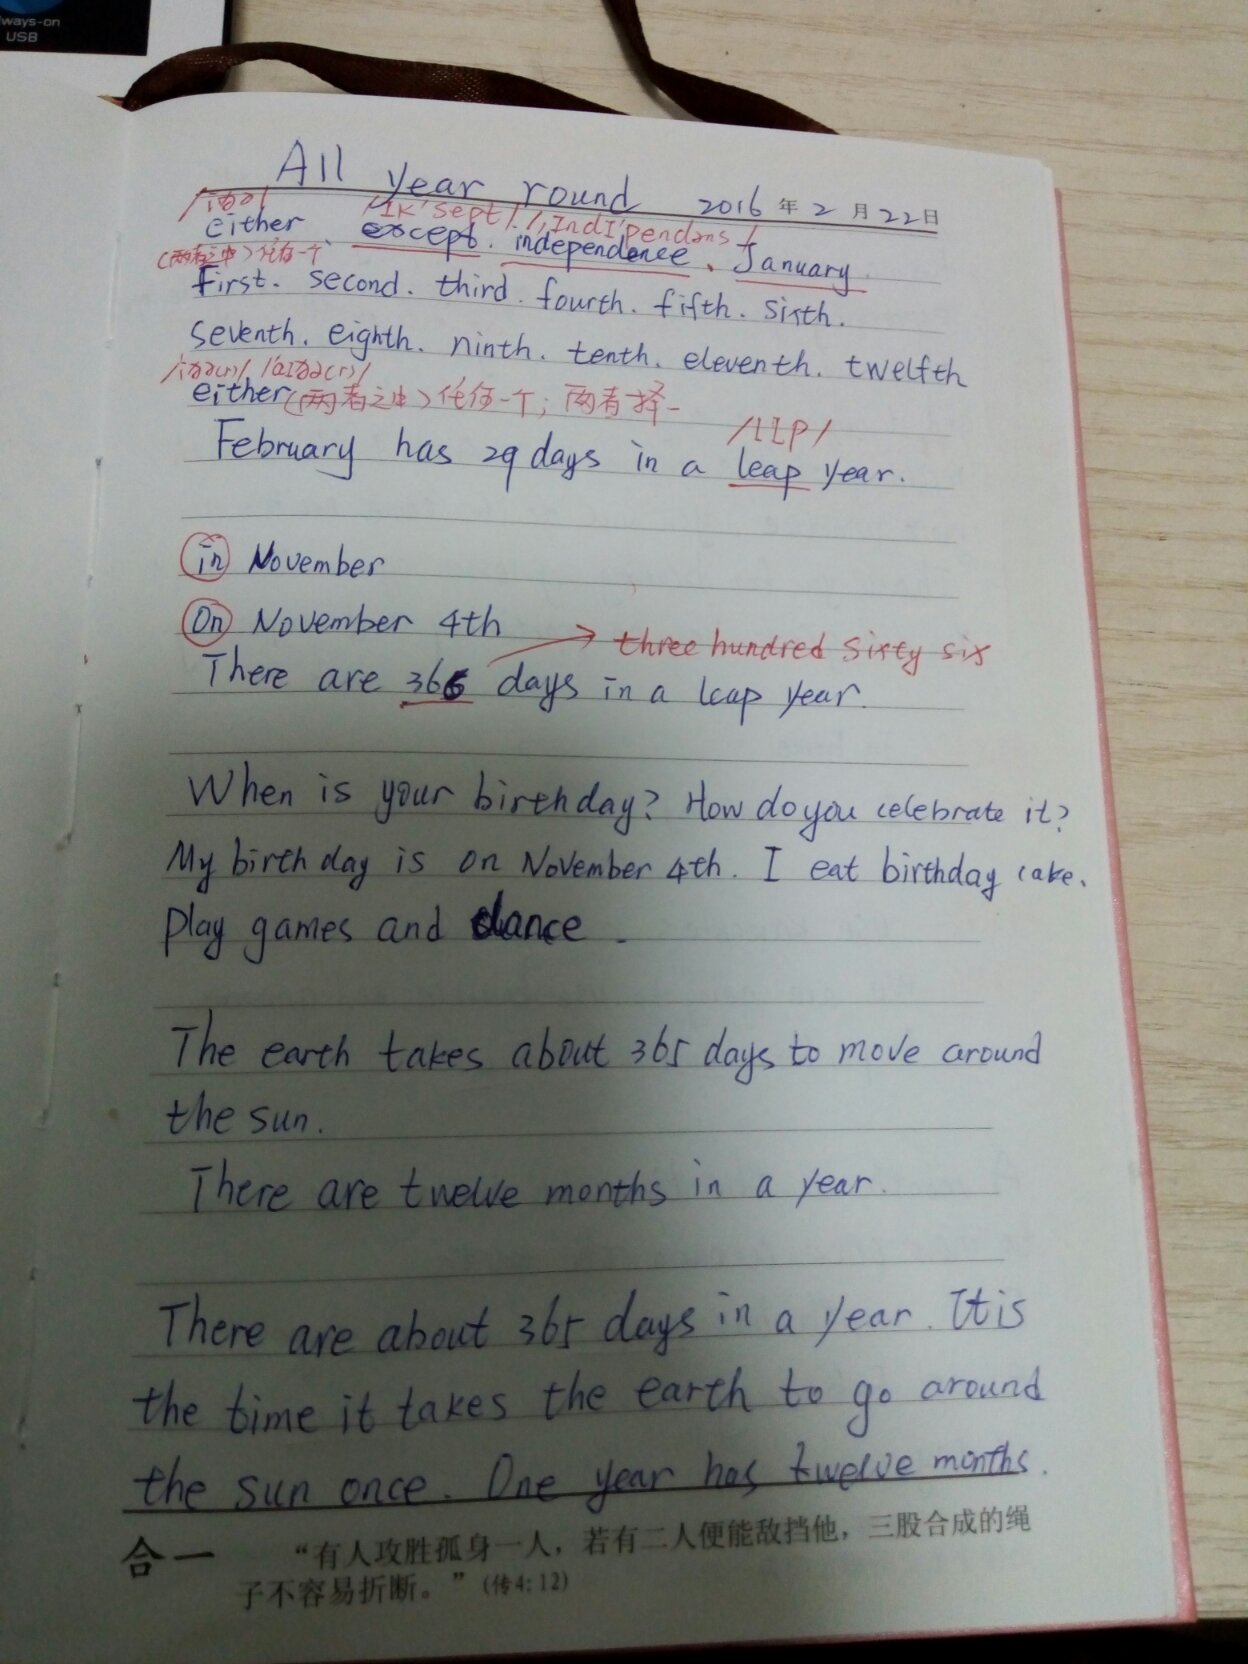 ways-on
USB
All year round 2016年2月22日
/ik'sept/. /,IndI'pendəns/
either except. independence、January
(两者之中)任何一个、
first. second. third. fourth. fifth. sixth.
seventh. eighth. ninth. tenth. eleventh. twelfth
either(两者之中)任何一个; 两者择一
/lip/
February has 29 days in a leap year.
in November
On November 4th
three hundred sixty six
There are 366 days in a leap year.
When is your birthday? How do you celebrate it?
My birthday is on November 4th. I eat birthday cake、
play games and dance.
The earth takes about 365 days to move around
the sun.
There are twelve months in a year.
There are about 365 days in a year. It is
the time it takes the earth to go around
the sun once. One year has twelve months.
合一 “有人攻胜孤身一人，若有二人便能敌挡他，三股合成的绳
子不容易折断。”(传4:12)